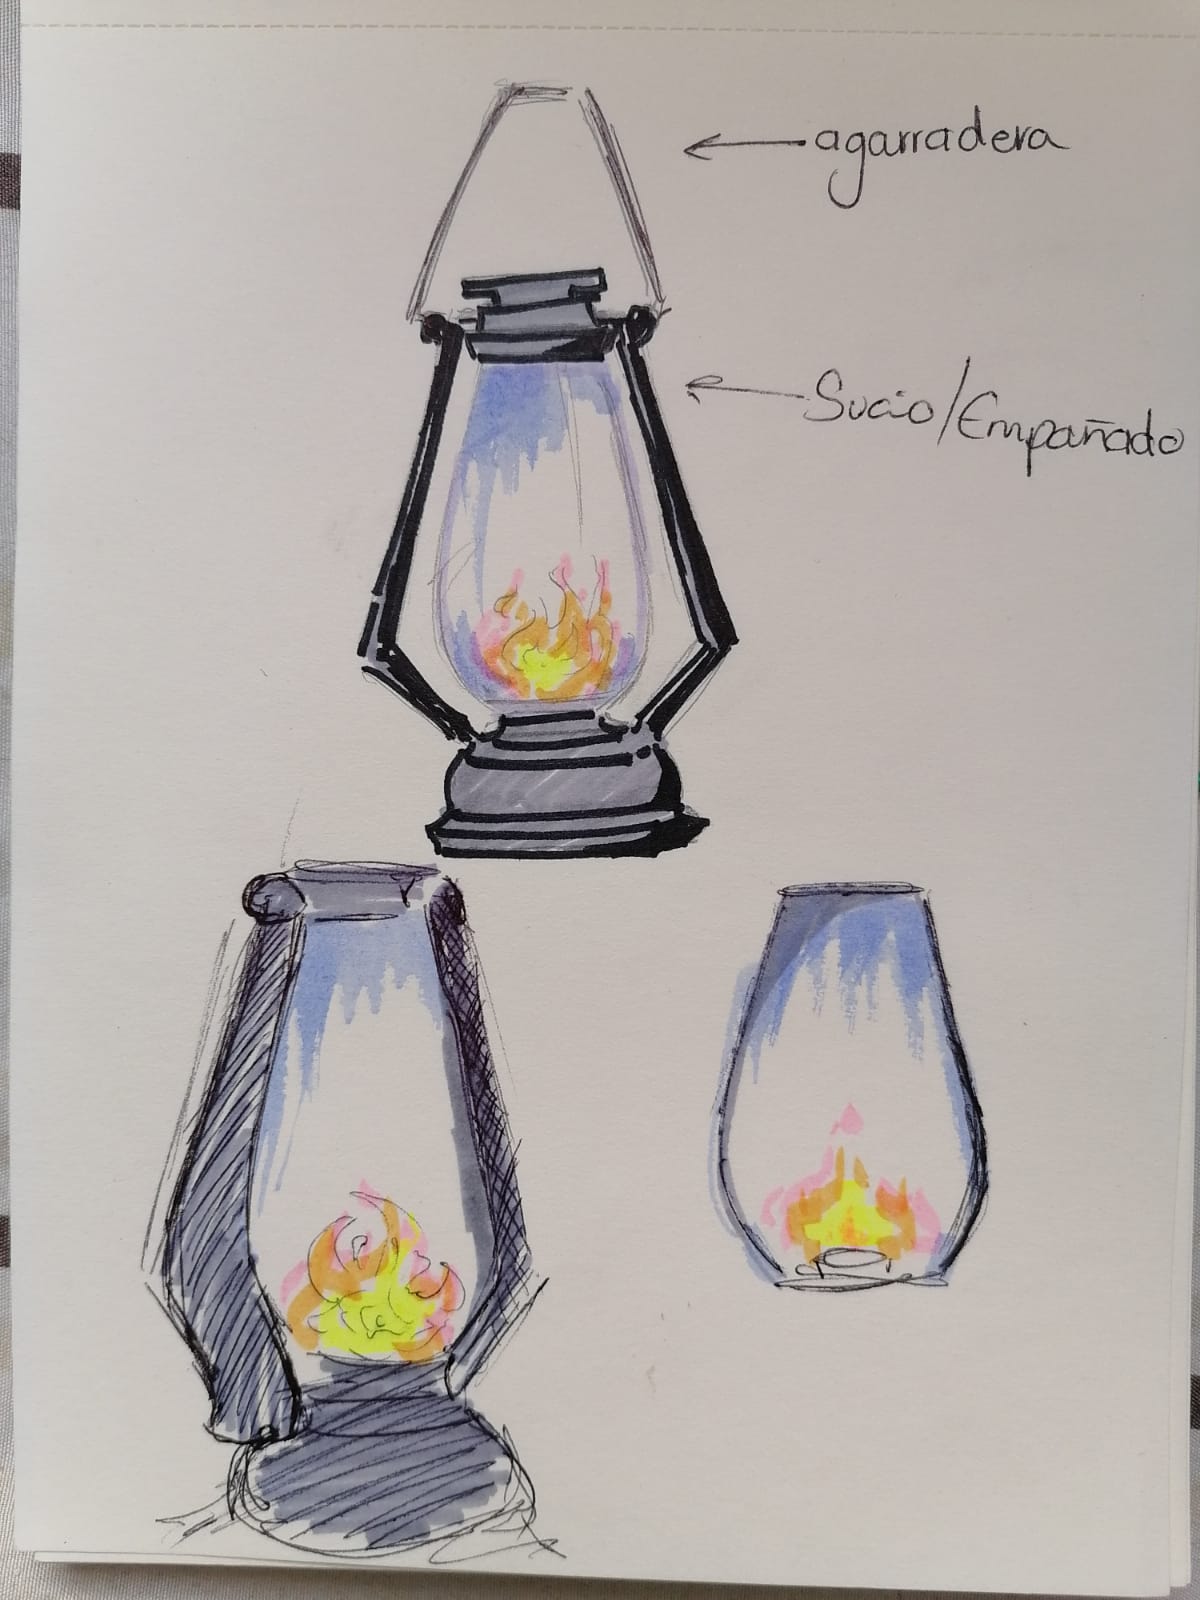 agarradera
Sucio/Empañado